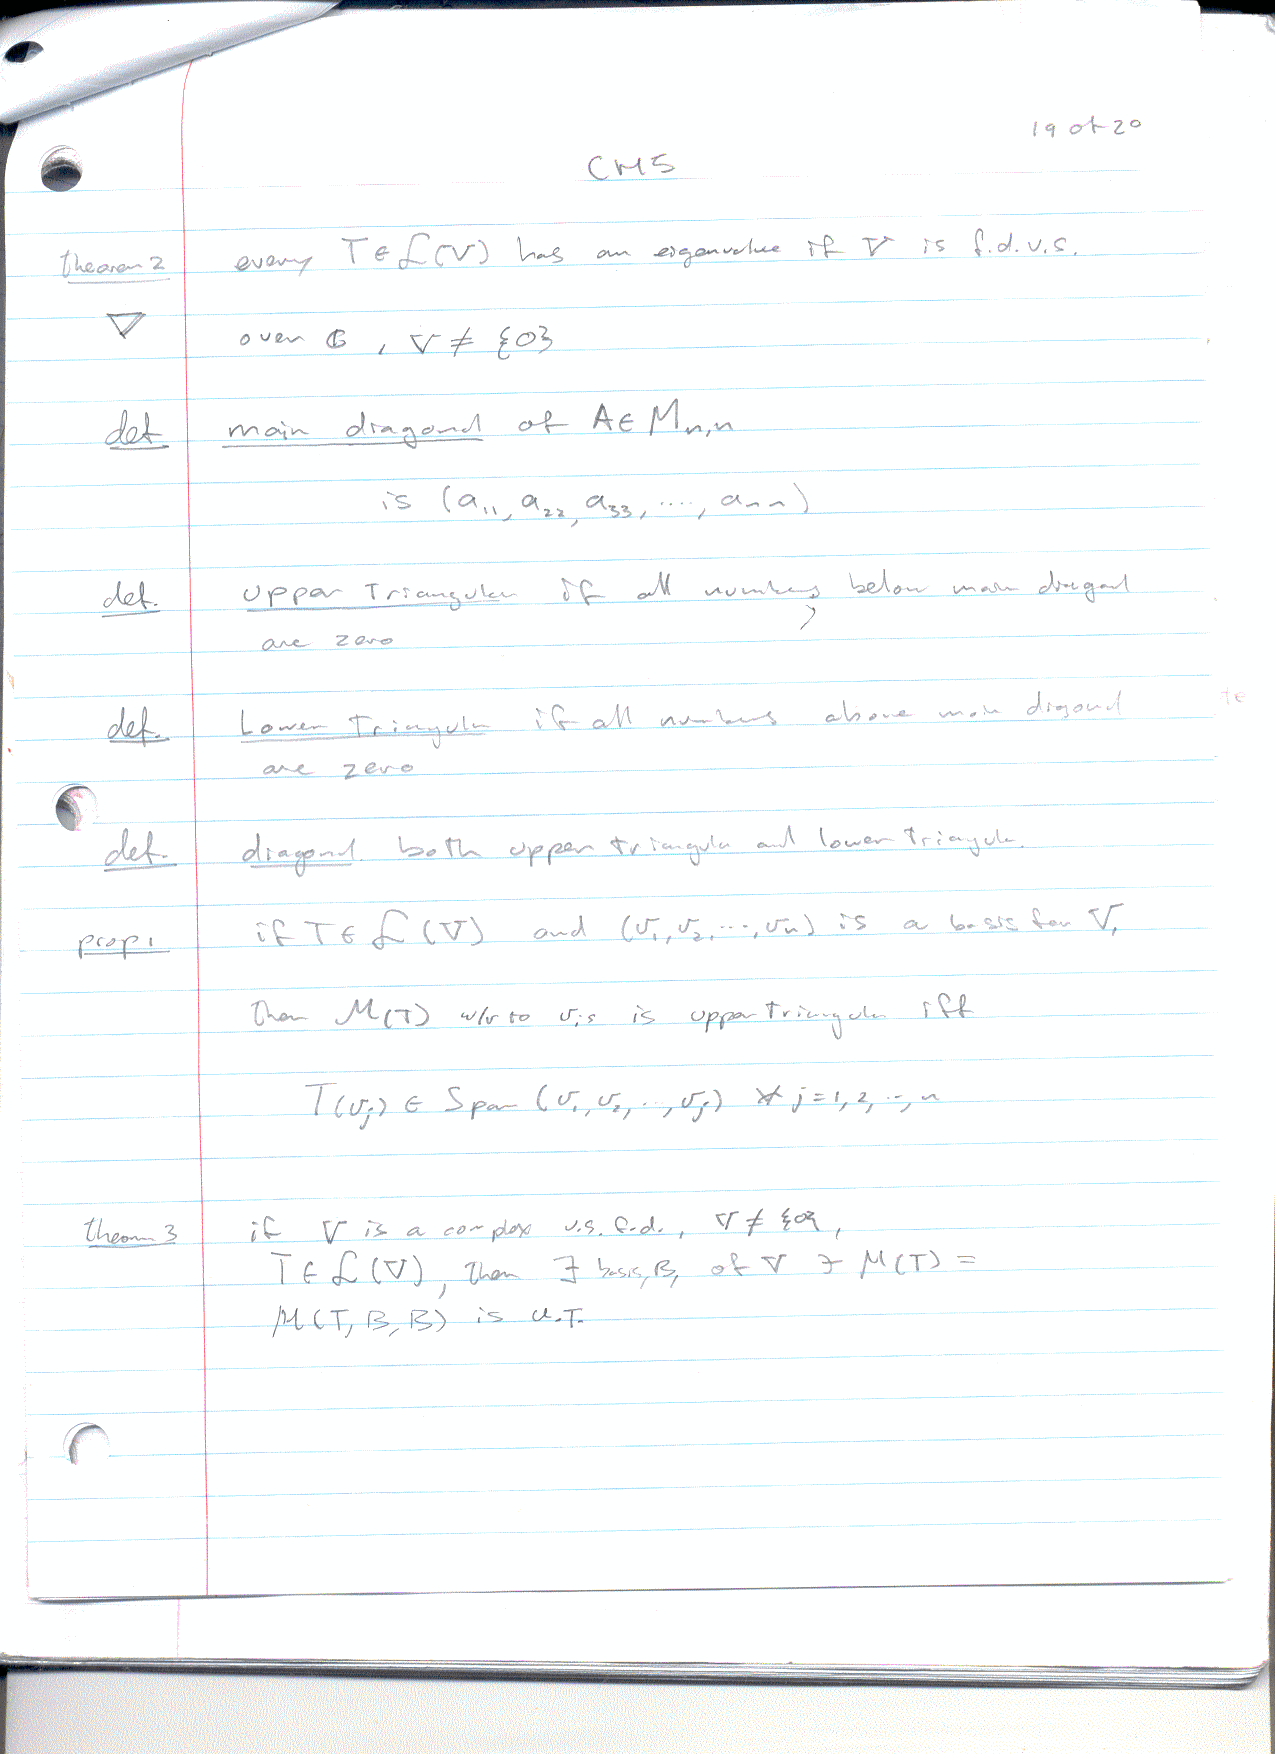 19 of 20
CH5
theorem 2 every T ∈ ℒ(V) has an eigenvalue if V is f.d.v.s.
▽ over ℂ, V ≠ {0}
def main diagonal of A ∈ M_{n,n}
is (a_{11}, a_{22}, a_{33}, ...., a_{nn})
def. upper Triangular if all numbers below main diagonal
are zero
def. Lower Triangular if all numbers above main diagonal
are zero
def. diagonal. both upper triangular and lower triangular.
prop 1 if T ∈ ℒ(V) and (v_1, v_2, ..., v_n) is a basis for V,
then M(T) w/r to v_i's is upper triangular iff
T(v_j) ∈ Span (v_1, v_2, ..., v_j) ∀ j = 1, 2, .., n
theorem 3 if V is a complex v.s. f.d., V ≠ {0},
T ∈ ℒ(V), then ∃ basis, B, of V ∋ M(T) =
M(T, B, B) is U.T.